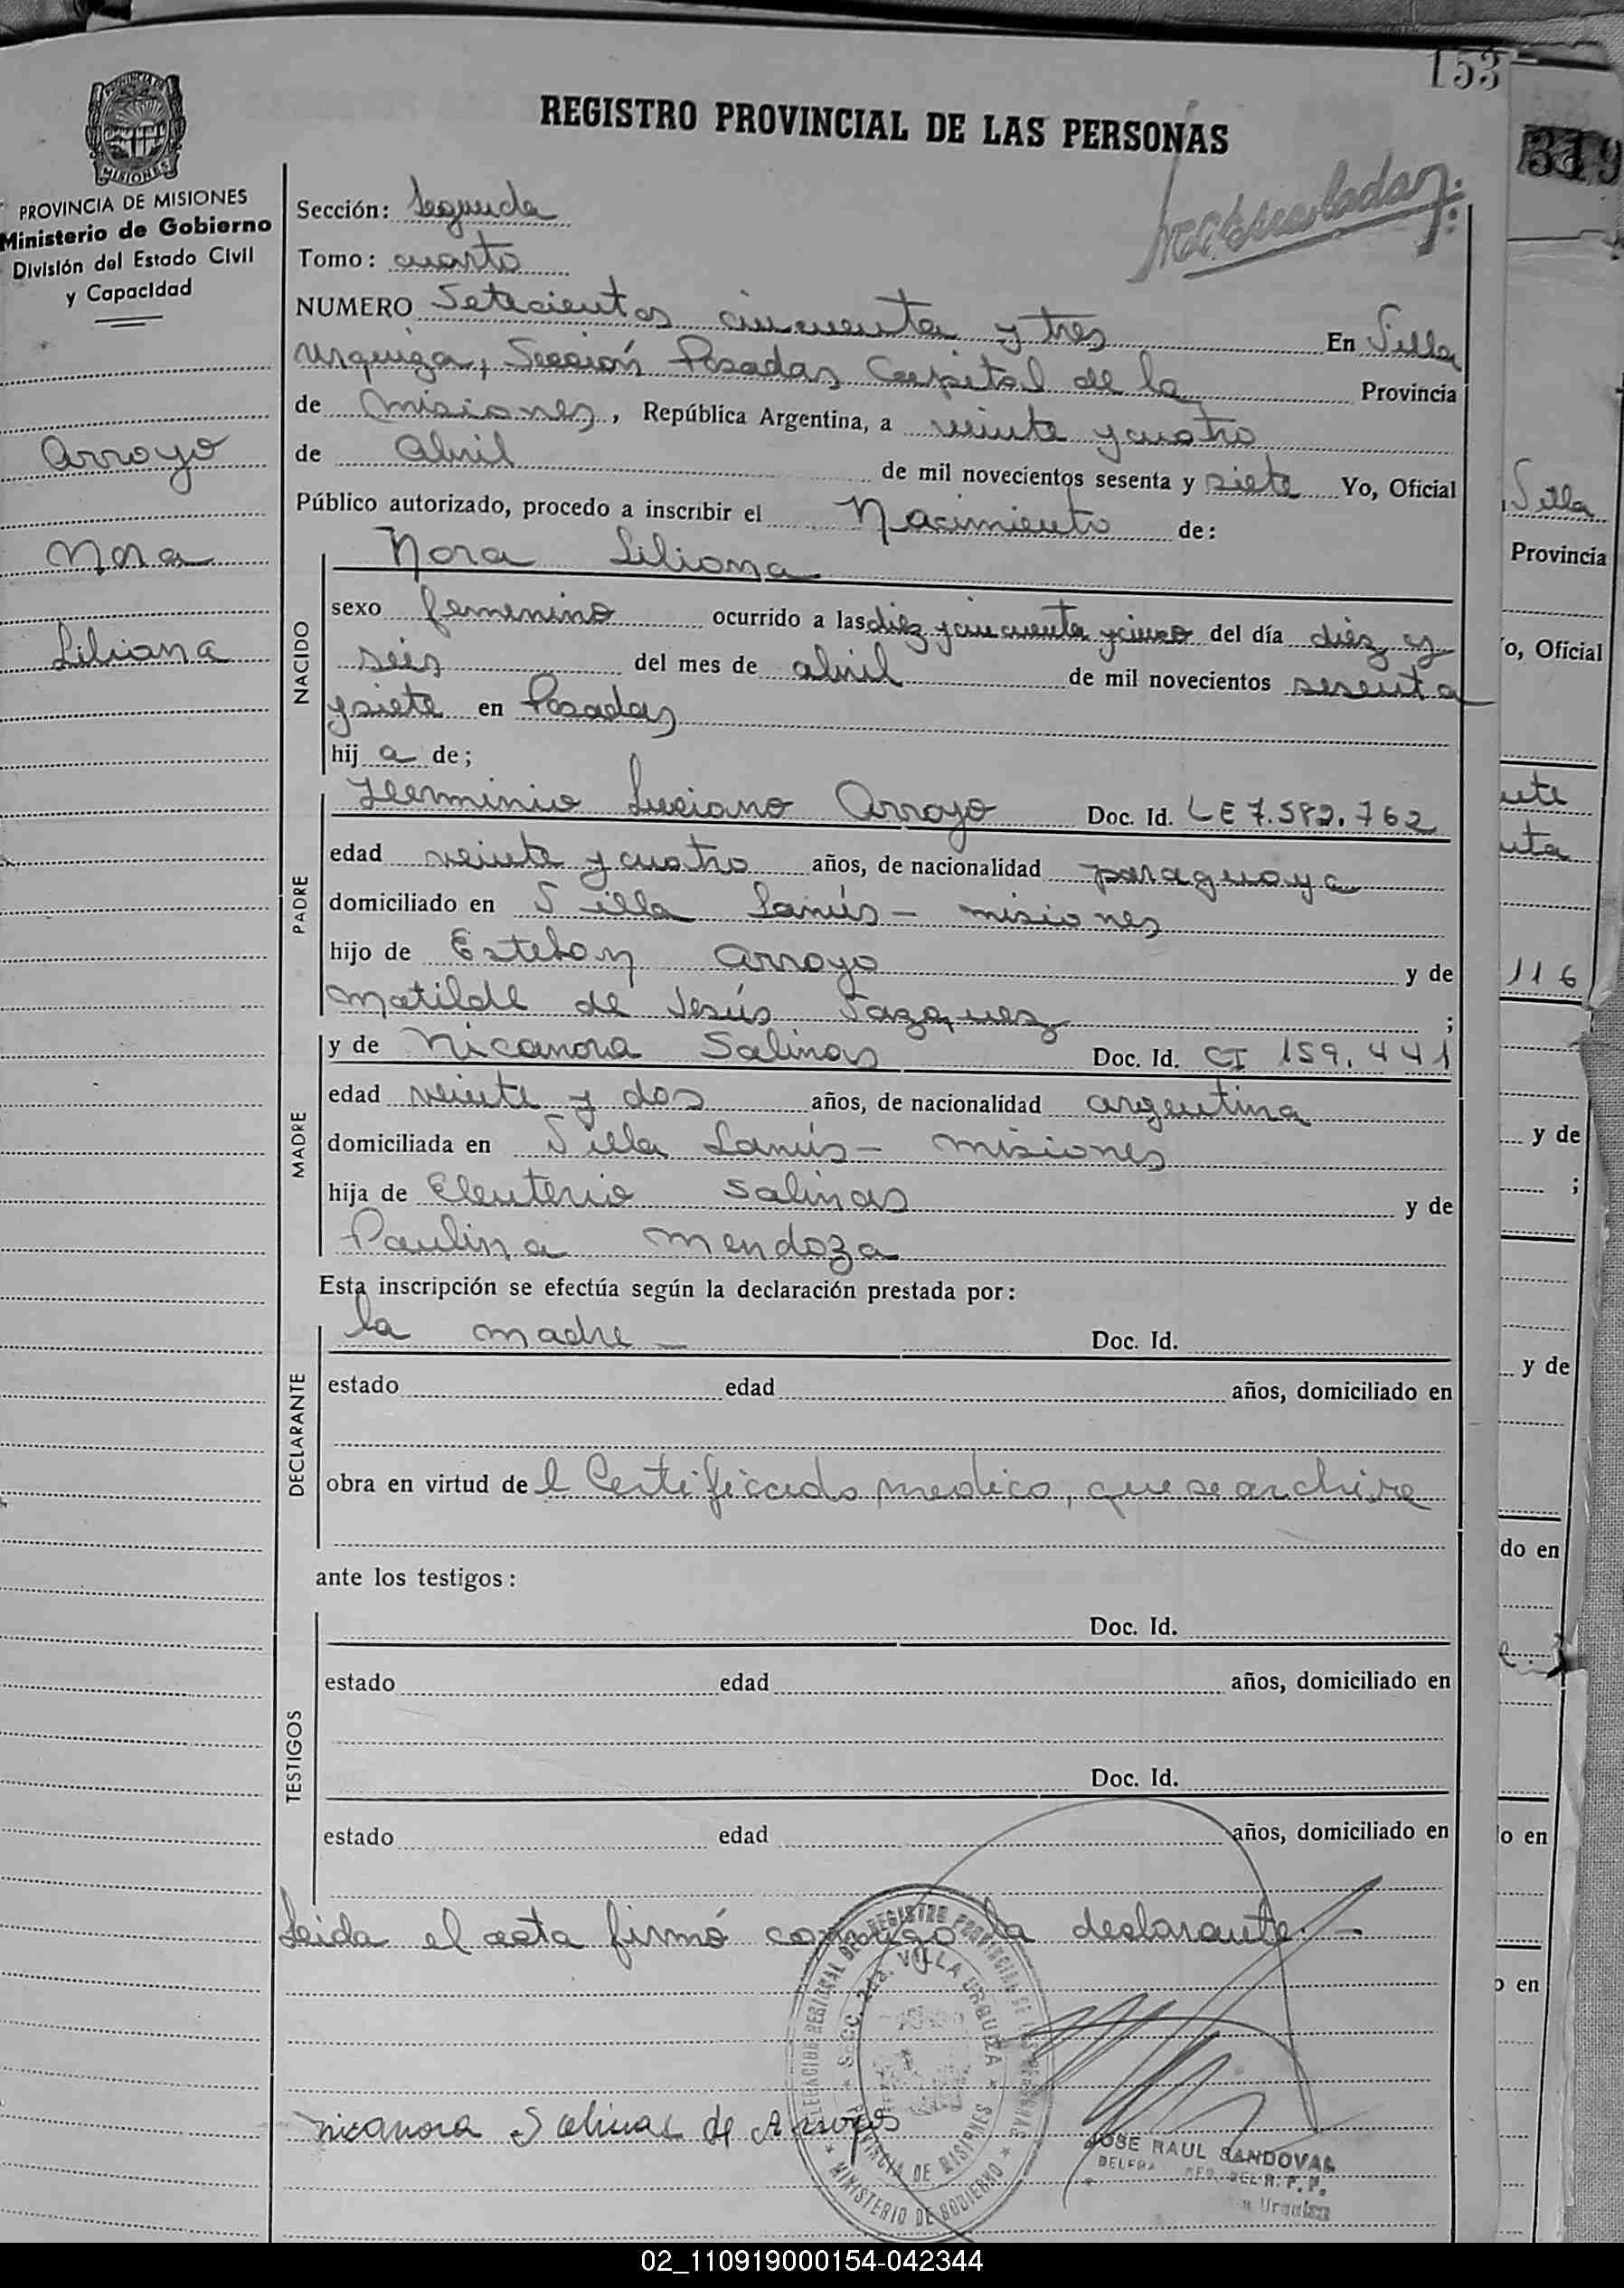 153
REGISTRO PROVINCIAL DE LAS PERSONAS
PROVINCIA DE MISIONES
MISIONES
PROVINCIA DE MISIONES
Ministerio de Gobierno
División del Estado Civil
y Capacidad
Sección: Segunda
Tomo: cuarto
NUMERO Setecientos cincuenta y tres En Villa
Urquiza, Sección Posadas Capital de la Provincia
de Misiones, República Argentina, a veinte y cuatro
de abril de mil novecientos sesenta y siete Yo, Oficial
Público autorizado, procedo a inscribir el Nacimiento de:
Arroyo
Nora
Liliana
NACIDO
Nora Liliana
sexo femenino ocurrido a las diez y cincuenta y cinco del día diez y
seis del mes de abril de mil novecientos sesenta
y siete en Posadas
hija de;
PADRE
Herminio Luciano Arroyo Doc. Id. LE 7.582.762
edad veinte y cuatro años, de nacionalidad paraguaya
domiciliado en Villa Lanús - misiones
hijo de Esteban Arroyo y de
Matilde de Jesús Vazquez ;
MADRE
y de Nicanora Salinas Doc. Id. CI 159.441
edad veinte y dos años, de nacionalidad argentina
domiciliada en Villa Lanús - misiones
hija de Eleuterio Salinas y de
Paulina Mendoza
Esta inscripción se efectúa según la declaración prestada por:
DECLARANTE
la madre - Doc. Id.
estado edad años, domiciliado en
obra en virtud de l Certificado medico, que se archiva
ante los testigos:
TESTIGOS
Doc. Id.
estado edad años, domiciliado en
Doc. Id.
estado edad años, domiciliado en
Leida el acta firmó conmigo la declarante. -
DELEGACION REGIONAL DEL REGISTRO PROVINCIAL DE LAS PERSONAS
SECC. 2da. VILLA URQUIZA
PROVINCIA DE MISIONES
MINISTERIO DE GOBIERNO
Nicanora Salinas de Arroyo
JOSE RAUL SANDOVAL
DEL R. P. P.
Urquiza
319
Villa
Provincia
o, Oficial
116
y de
;
y de
do en
o en
o en
02_110919000154-042344